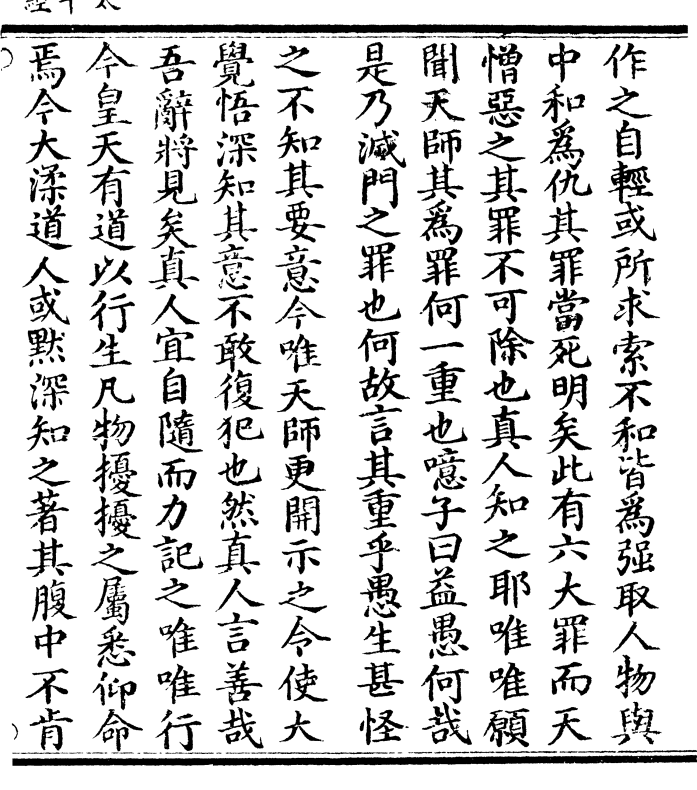 作之自輕或所求索不和皆為强取人物與
中和為仇其罪當死明矣此有六大罪而天
憎惡之其罪不可除也真人知之耶唯唯願
聞天師其為罪何一重也噫子曰益愚何哉
是乃滅門之罪也何故言其重乎愚生甚怪
之不知其要意今唯天師更開示之令使大
覺悟深知其意不敢復犯也然真人言善哉
吾辭將見矣真人宜自隨而力記之唯唯行
今皇天有道以行生凡物擾擾之屬悉仰命
焉今大渘道人或默深知之著其腹中不肯